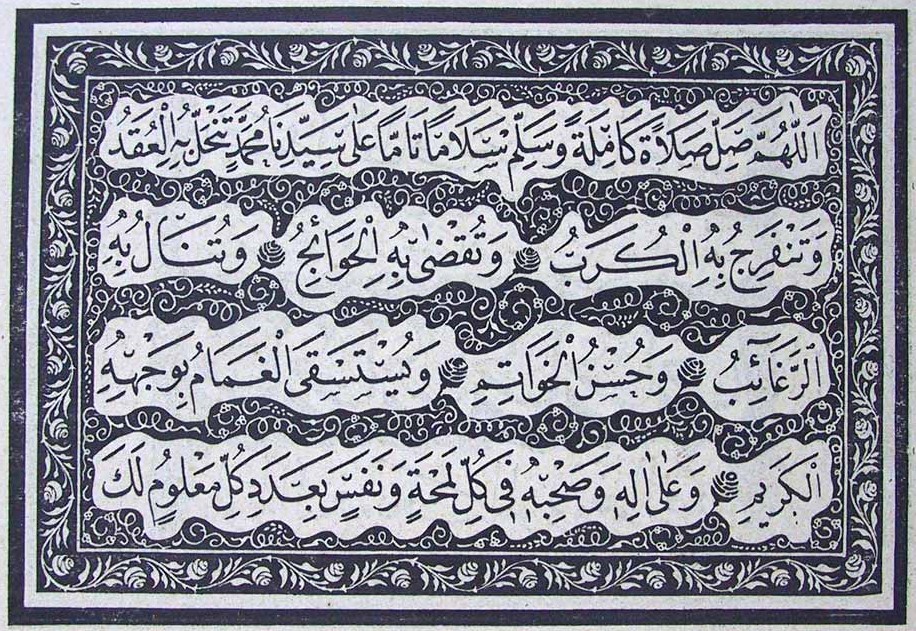 اَللّٰهُمَّ صَلِّ صَلَاةً كَامِلَةً وَسَلِّمْ سَلَامًا تَامًّا عَلٰى سَيِّدِنَا مُحَمَّدٍ تَنْحَلُّ بِهِ الْعُقَدُ
وَتَنْفَرِجُ بِهِ الْكُرَبُ وَتُقْضٰى بِهِ الْحَوَائِجُ وَتُنَالُ بِهِ
الرَّغَائِبُ وَحُسْنُ الْخَوَاتِمِ وَيُسْتَسْقَى الْغَمَامُ بِوَجْهِهِ
الْكَرِيمِ وَعَلٰى اٰلِهِ وَصَحْبِهِ فِى كُلِّ لَمْحَةٍ وَنَفَسٍ بِعَدَدِ كُلِّ مَعْلُومٍ لَكَ